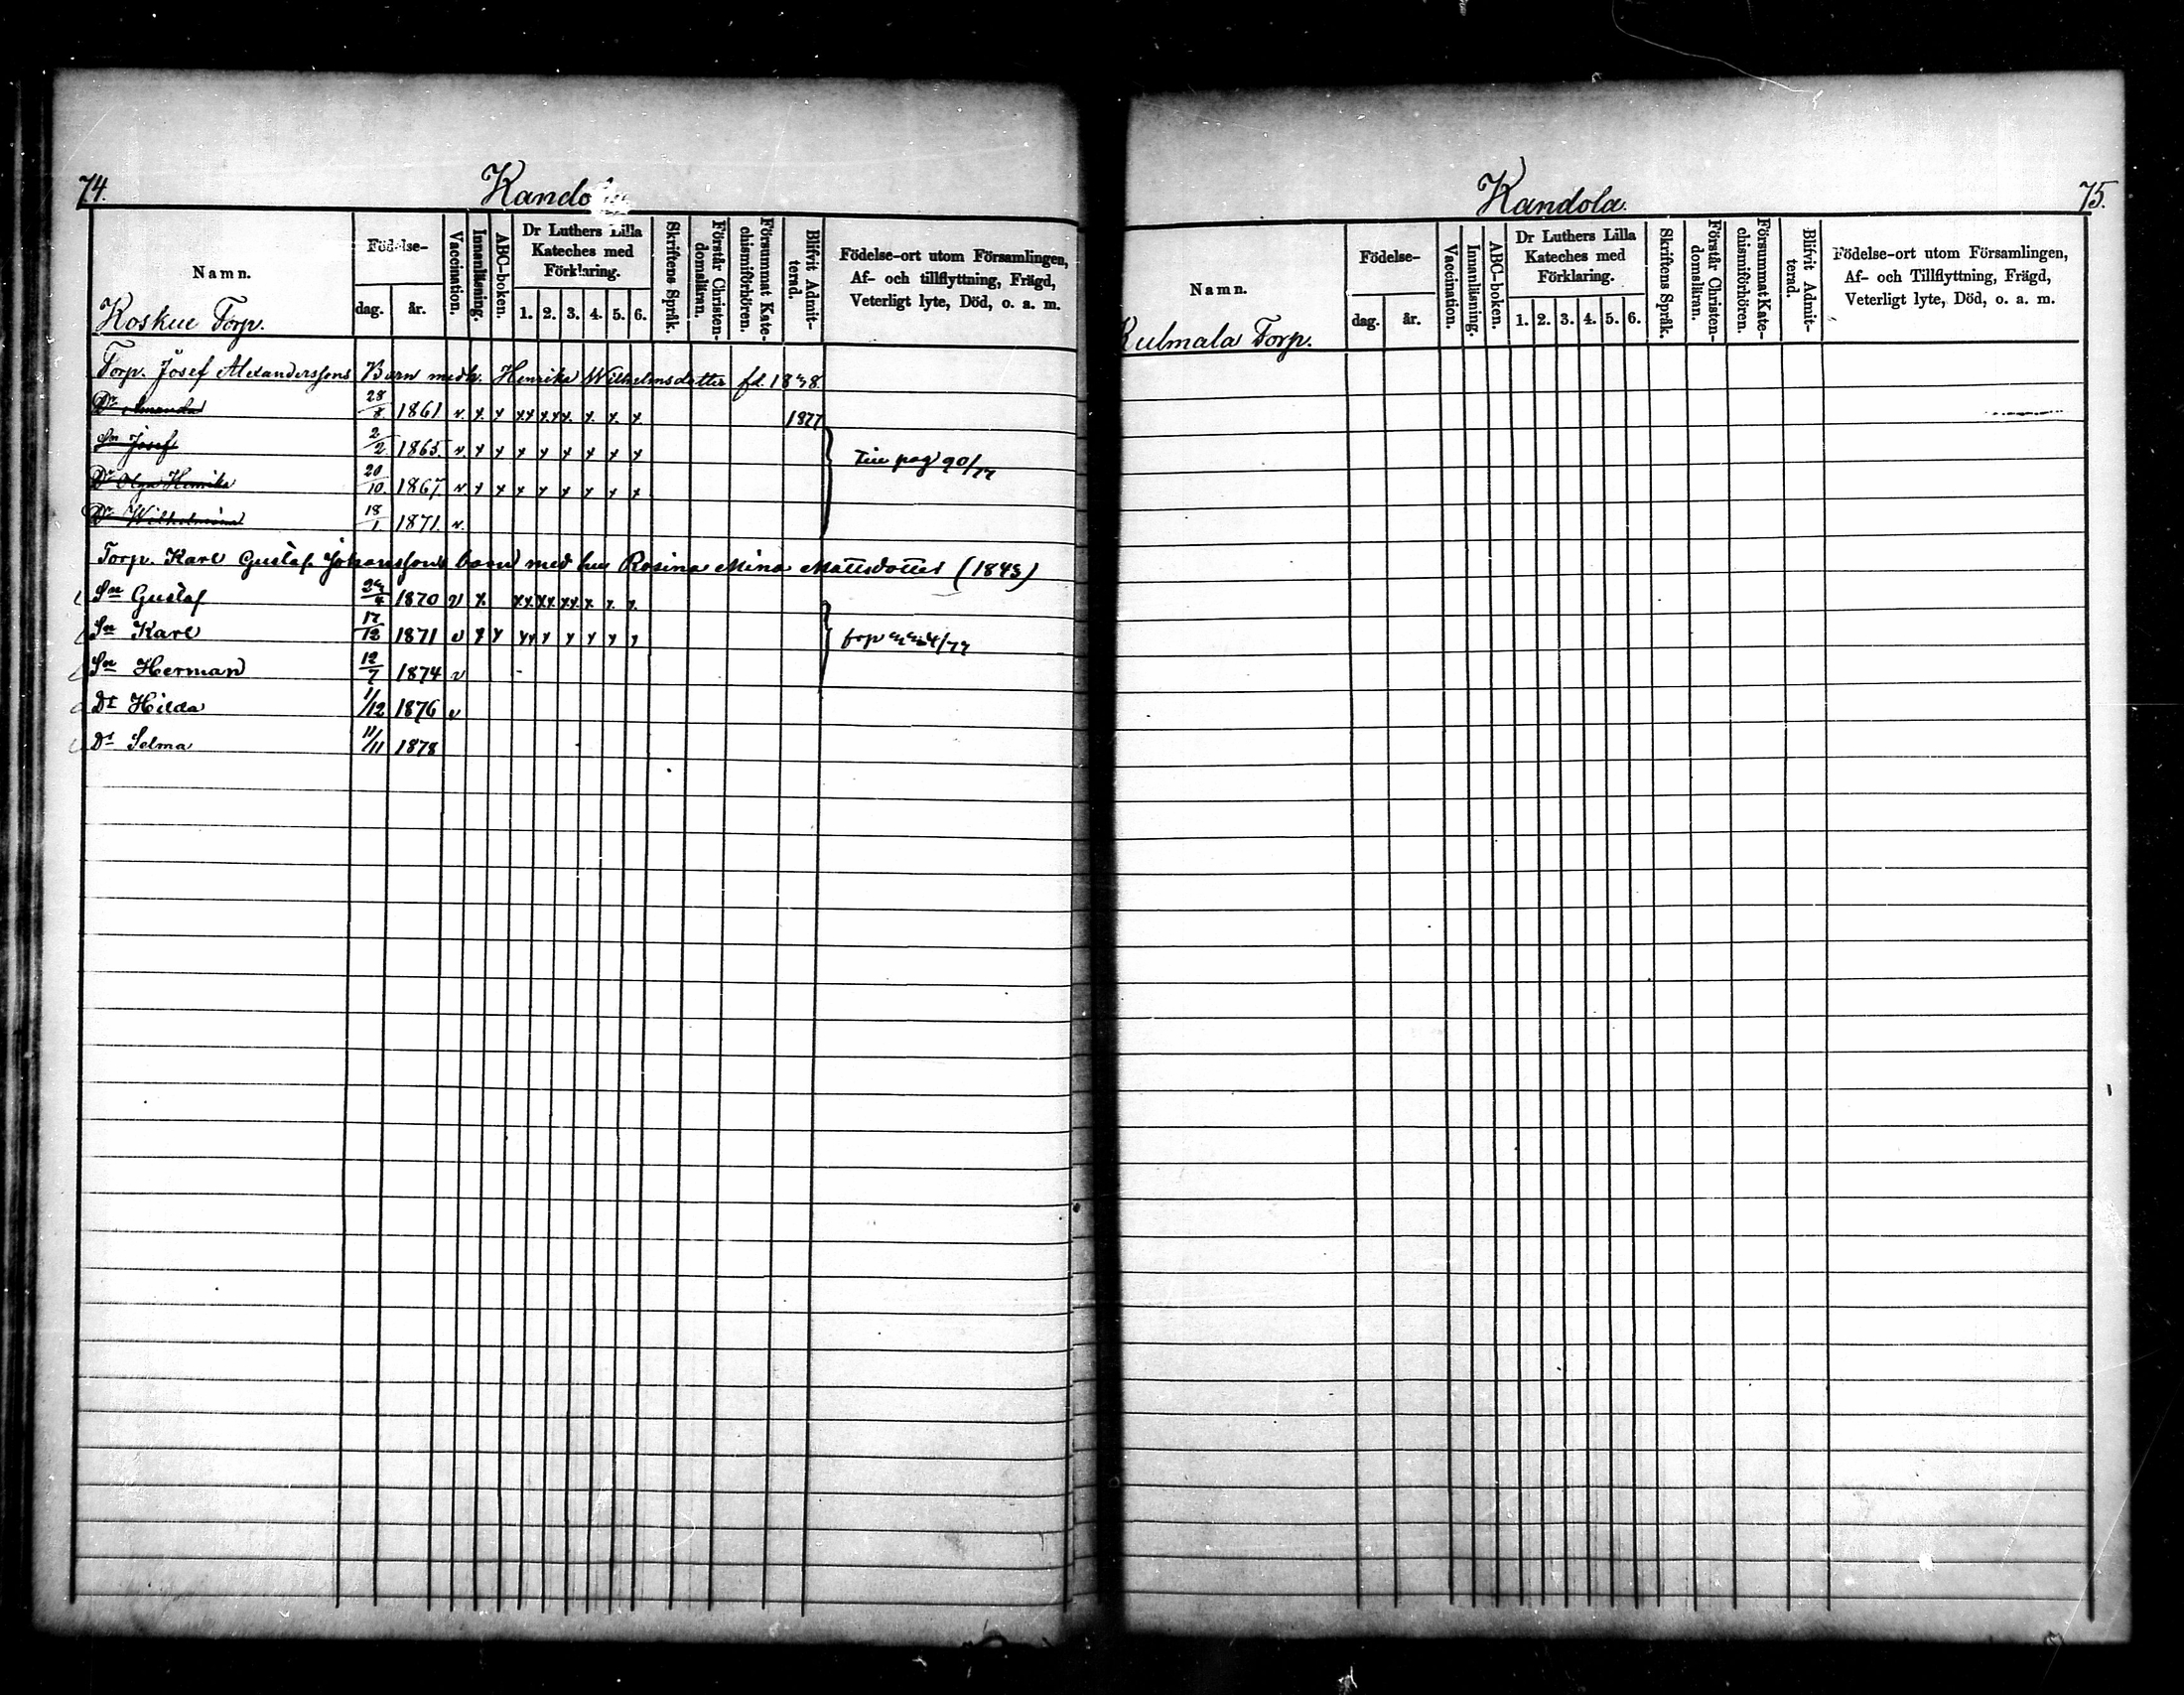 74.
Kandola
Namn.
Födelse-
dag. år.
Vaccination.
Innanläsning.
ABC-boken.
Dr Luthers Lilla
Kateches med
Förklaring.
1. 2. 3. 4. 5. 6.
Skriftens Språk.
Förstår Christen-
domsläran.
Försummat Kate-
chismiförhören.
Blifvit Admit-
terad.
Födelse-ort utom Församlingen,
Af- och tillflyttning, Frägd,
Veterligt lyte, Död, o. a. m.
Koskue Torp.
Torp. Josef Alexanderssons Barn med h. Henrika Wilhelmsdotter fd. 1838.
Dr Amanda 28/8 1861 v. x x xx xx x. x. x. x. 1877
Sn Josef 2/2 1865 v. x x x x x x x x
Dr Olga Henrika 20/10 1867. v x x x x x x x x
Dr Wilhelmina 18/1 1871. v.
pag 90/77
Torp. Karl Gustaf Johanssons barn med hu Rosina Mina Mattsdotter (1843)
Sn Gustaf 1870 v x. xx xx xx x. x. x.
Sn Karl 17/12 1871 v x x xx x x x x x
Sn Herman 12/7 1874 v -
Dr Hilda 1/12 1876 v
Dr Selma 11/11 1878
75.
Kandola.
Namn.
Födelse-
dag. år.
Vaccination.
Innanläsning.
ABC-boken.
Dr Luthers Lilla
Kateches med
Förklaring.
1. 2. 3. 4. 5. 6.
Skriftens Språk.
Förstår Christen-
domsläran.
Försummat Kate-
chismiförhören.
Blifvit Admit-
terad.
Födelse-ort utom Församlingen,
Af- och Tillflyttning, Frägd,
Veterligt lyte, Död, o. a. m.
Kulmala Torp.